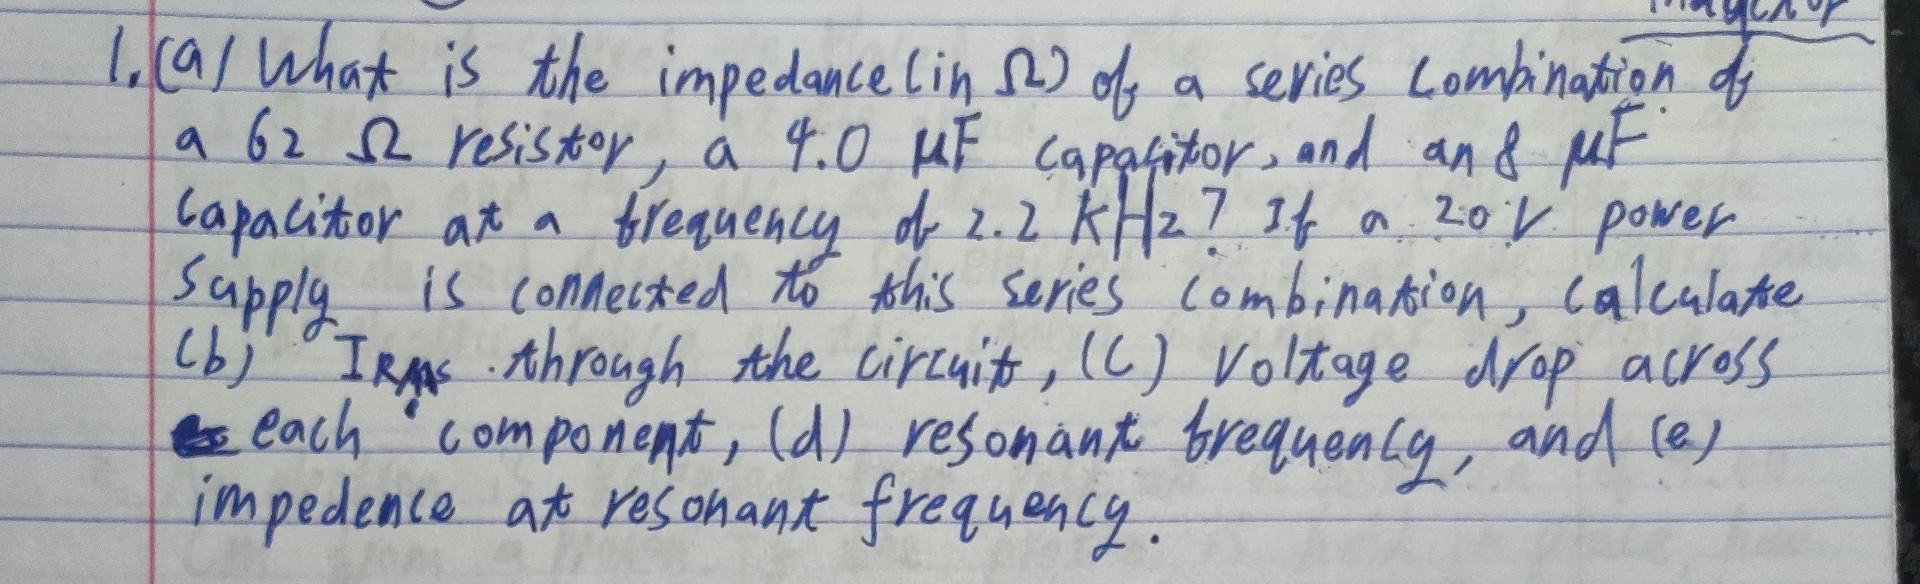 inductor
1.(a) What is the impedance (in Ω) of a series combination of
a 62 Ω resistor, a 4.0 μF capacitor, and an 8 μF
capacitor at a frequency of 2.2 kHz? If a 20 V power
supply is connected to this series combination, calculate
(b) IRMS through the circuit, (c) voltage drop across
each component, (d) resonant frequency, and (e)
impedence at resonant frequency.